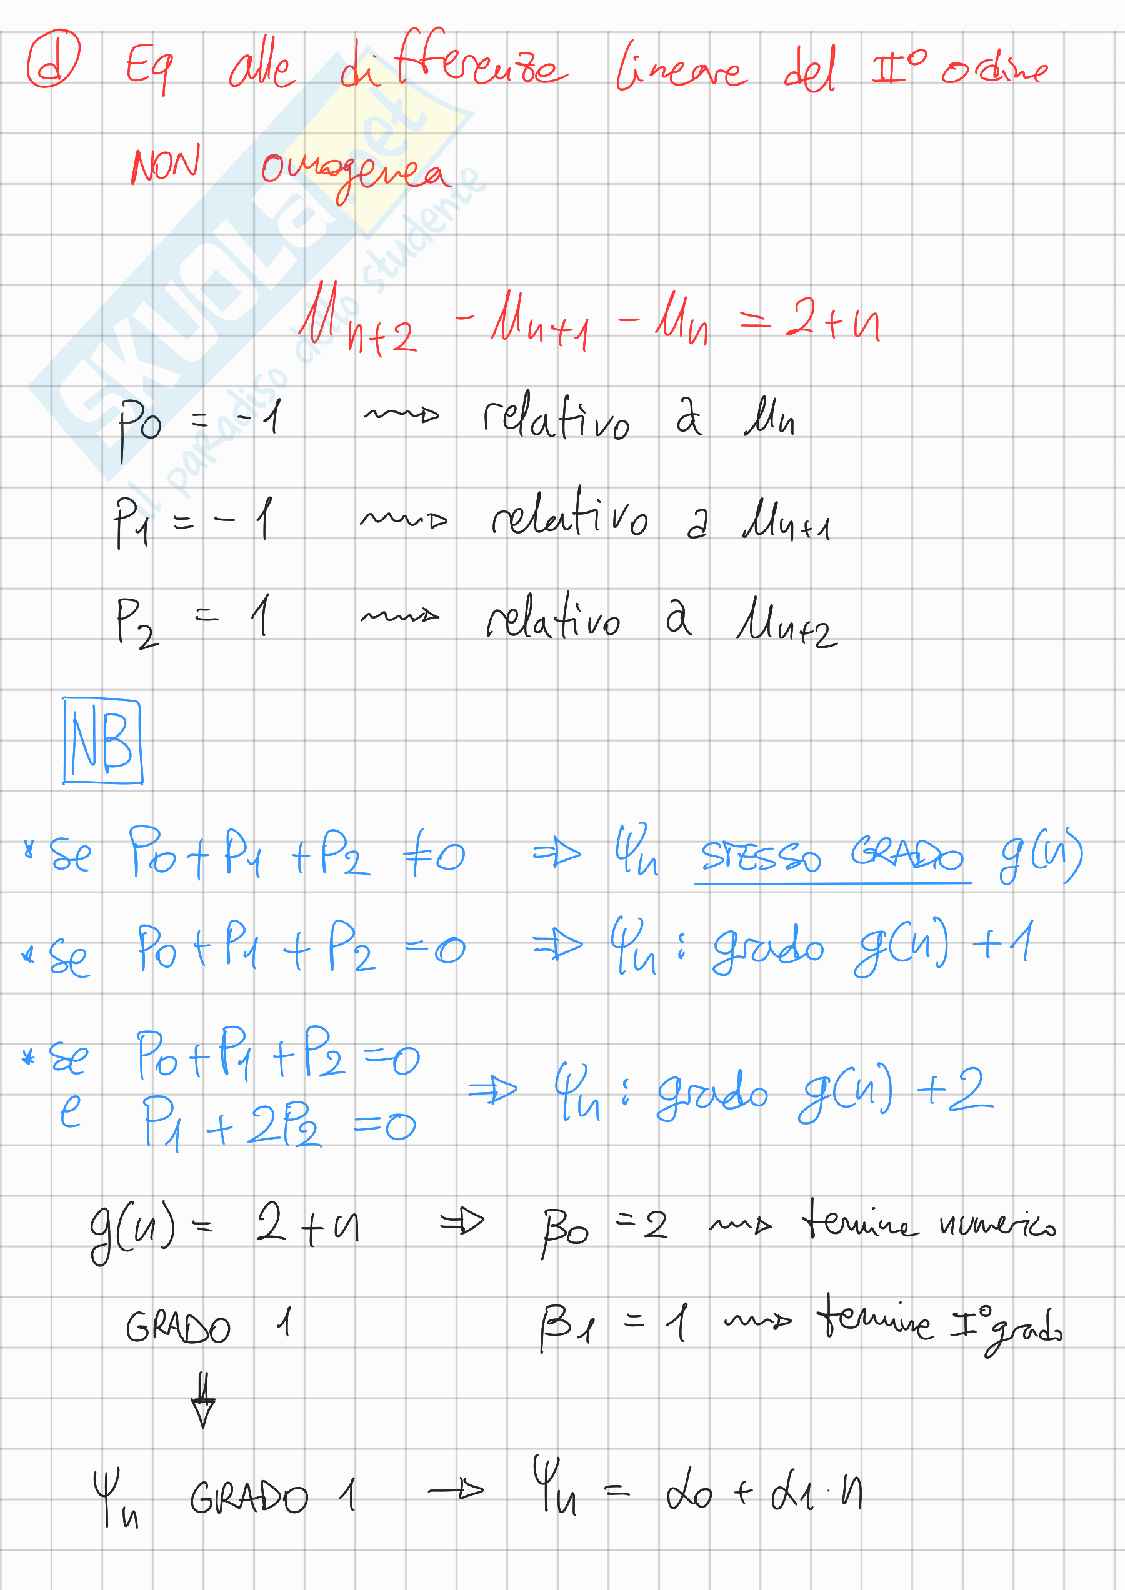 d Eq alle differenze lineare del II° ordine
NON omogenea
μn+2 - μn+1 - μn = 2+n
P0 = -1 ⟿ relativo a μn
P1 = -1 ⟿ relativo a μn+1
P2 = 1 ⟿ relativo a μn+2
NB
* se P0 + P1 + P2 ≠ 0 ⇒ ψn STESSO GRADO g(n)
* se P0 + P1 + P2 = 0 ⇒ ψn : grado g(n) + 1
* se P0 + P1 + P2 = 0
e P1 + 2P2 = 0 ⇒ ψn : grado g(n) + 2
g(n) = 2 + n ⇒ β0 = 2 ⟿ termine numerico
GRADO 1 β1 = 1 ⟿ termine I° grado
↓
ψn GRADO 1 → ψn = α0 + α1 · n
SKUOLA.net
il paradiso dello studente